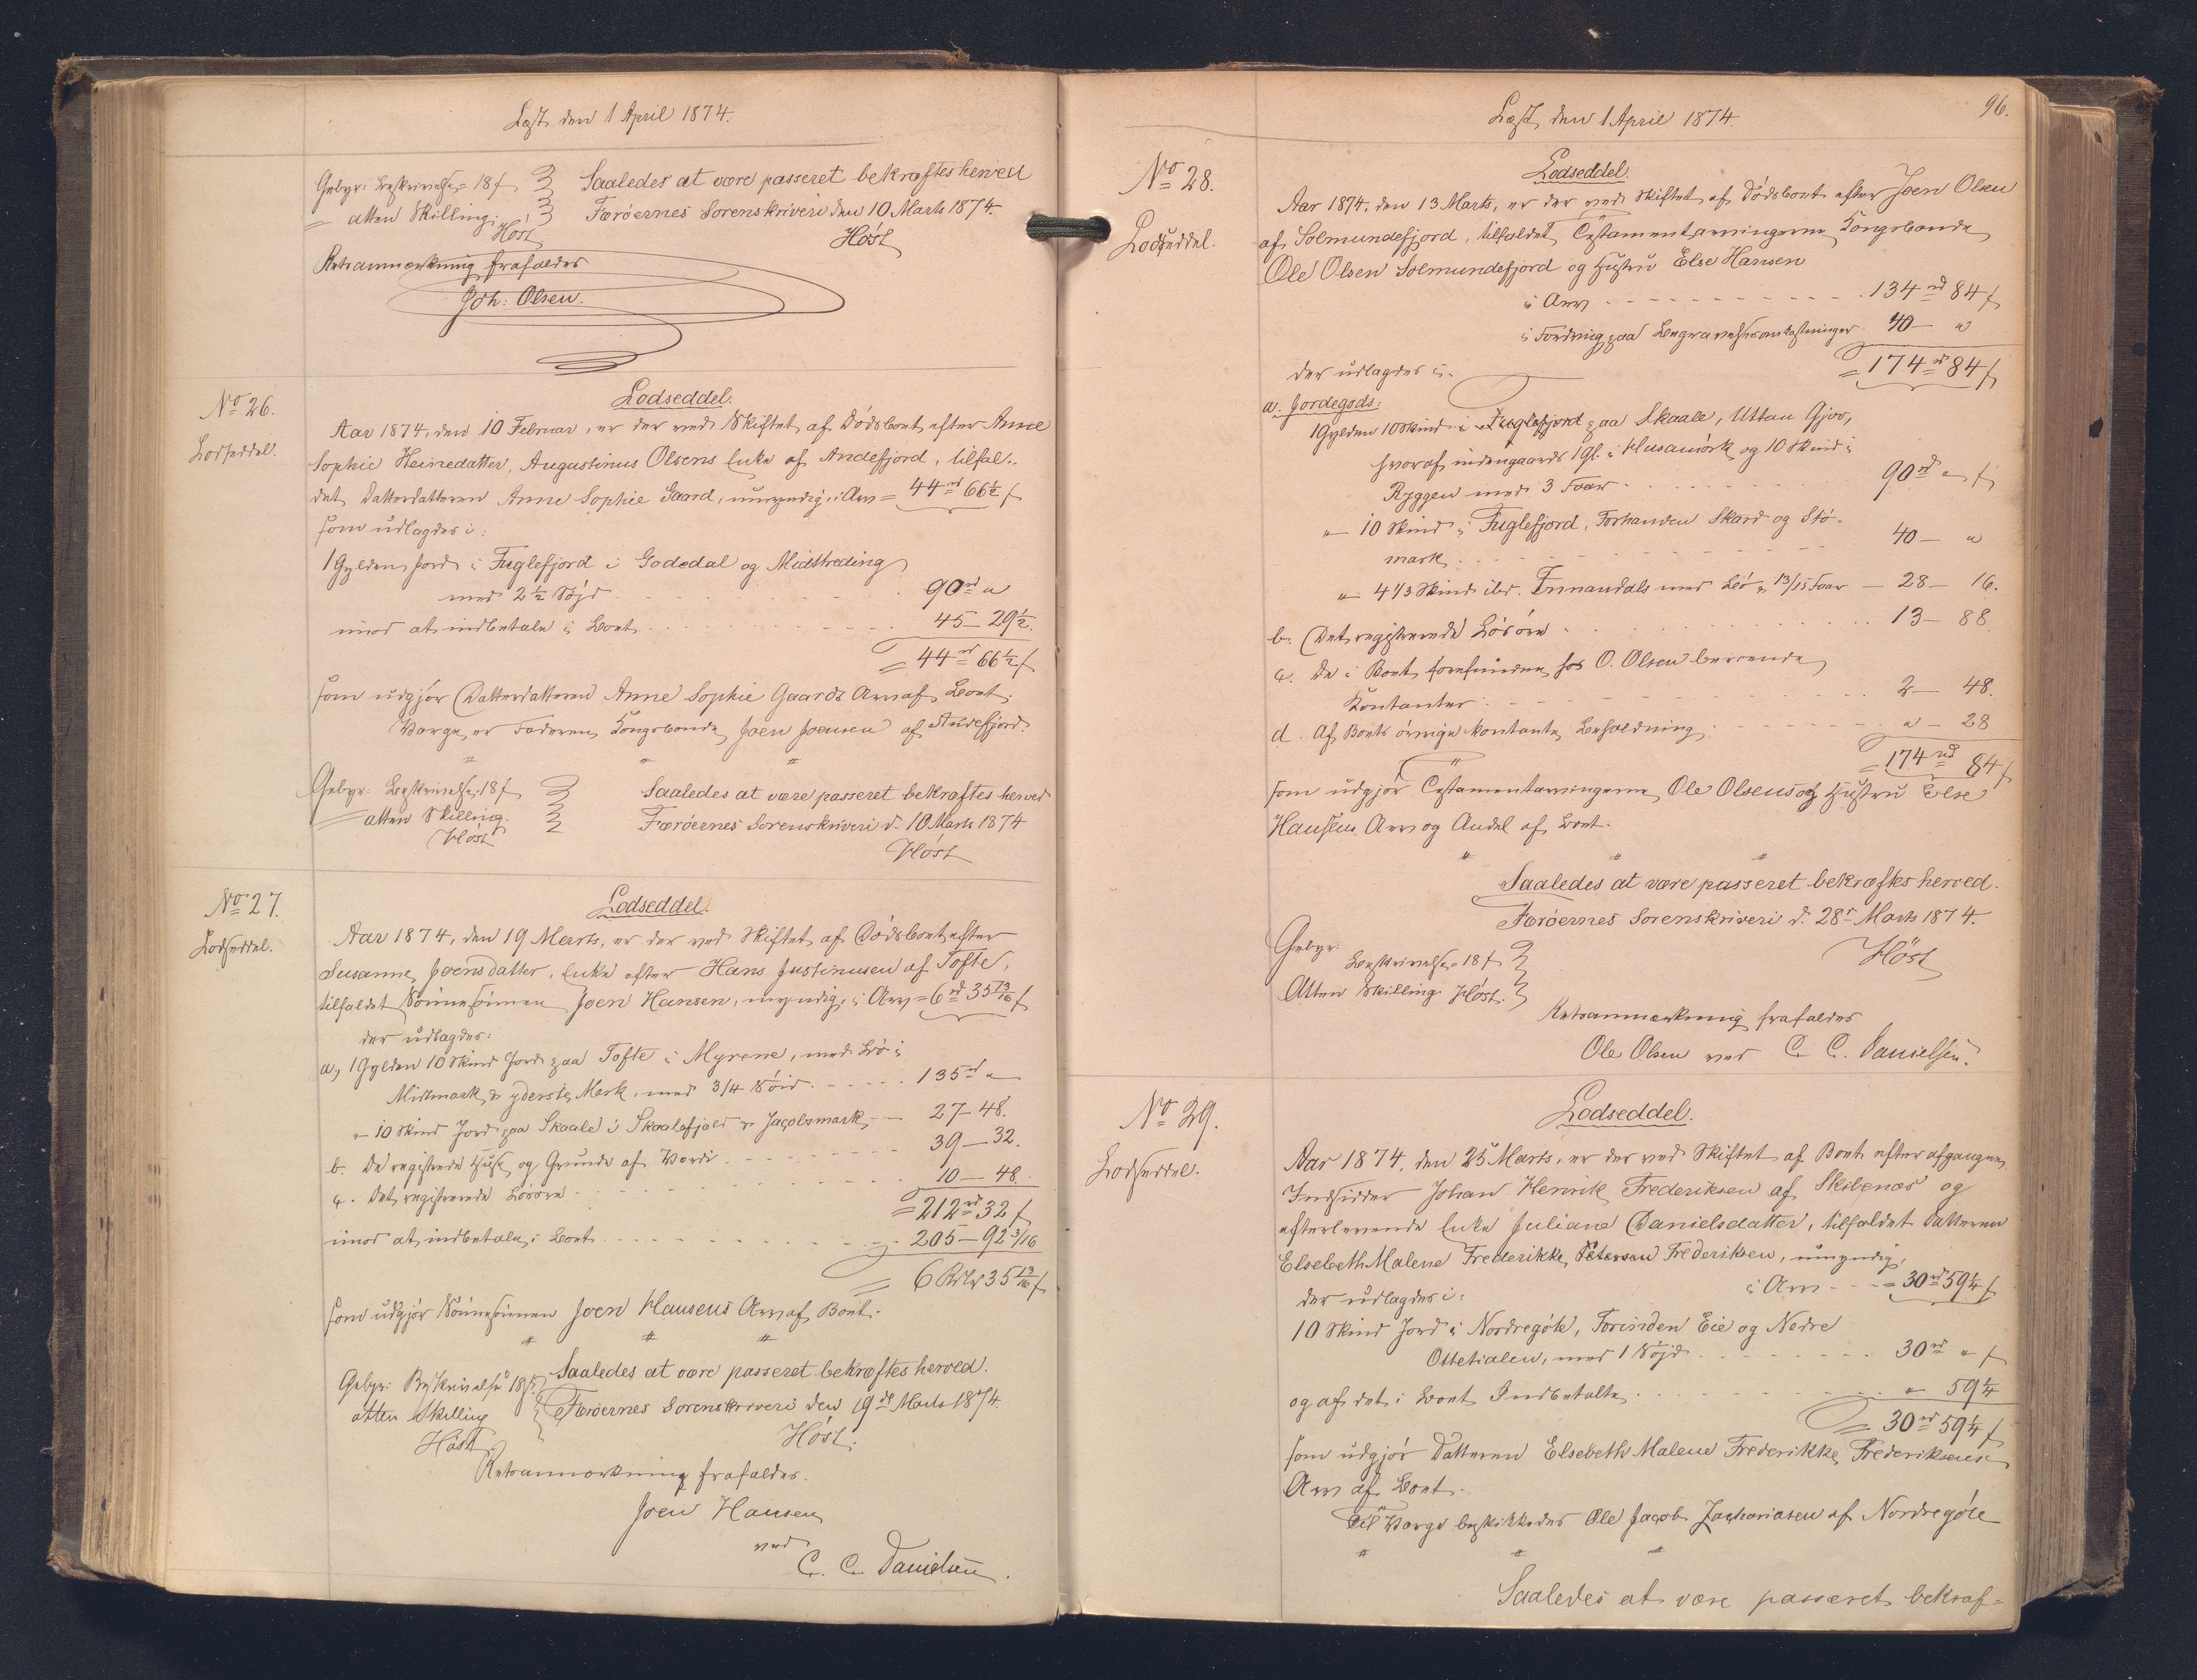 Læst den 1 April 1874.
Gebyr: Beskrivelse 18 ſ
= atten Skilling.
Høst
Saaledes at være passeret bekræftes herved
Færöernes Sorenskriveri den 10 Marts 1874.
Høst
Retsanmærkning frafaldes
Joh: Olsen.
No 26.
Lodseddel.
Lodseddel.
Aar 1874, den 10 Februar, er der ved Skiftet af Dödsboet efter Anne
Sophie Heinedatter, Augustinus Olsens Enke af Andefjord, tilfal-
det Datterdatteren Anne Sophie Gaard, umyndig, i Arv = 44 rd 66½ ſ
som udlagdes i:
1 Gylden Jord i Fuglefjord i Godedal og Midttreding
med 2½ Söjd 90 rd "
imod at indbetale i Boet 45 – 29½.
= 44 rd 66½ ſ
som udgjör Datterdatteren Anne Sophie Gaards Arv af Boet.
Værge er Faderen Kongsbonde Joen Joensen af Andefjord.
Gebyr: Beskrivelse 18 ſ
= atten Skilling.
Høst
Saaledes at være passeret bekræftes herved
Færöernes Sorenskriveri d. 10 Marts 1874
Høst
No 27.
Lodseddel.
Lodseddel.
Aar 1874, den 19 Marts, er der ved Skiftet af Dödsboet efter
Susanne Joensdatter, Enke efter Hans Justinusen af Tofte,
tilfaldet Sönnesönnen Joen Hansen, myndig, i Arv = 6 rd 35 13/16 ſ
der udlagdes:
a, 1 Gylden 10 Skind Jord paa Tofte i Myrene, med Bö i
Midmark & yderste Mark, med 3/4 Söid 135 rd "
" 10 Skind Jord paa Skaale i Skaalefjæld & Jacobsmark 27 – 48.
b. De registrerede Huse og Grunde af Værdi 39 – 32.
c. Det registrerede Lösöre 10 – 48.
= 212 rd 32 ſ
imod at indbetale i Boet 205 – 92 3/16
= 6 Rdlr 35 13/16 ſ
som udgjör Sönnesönnen Joen Hansens Arv af Boet.
Gebyr: Beskrivelse 18 ſ
atten Skilling
Høst.
Saaledes at være passeret bekræftes herved.
Færöernes Sorenskriveri den 19de Marts 1874.
Høst.
Retsanmærkning frafaldes.
Joen Hansen
ved
C. C. Danielsen.
96.
Læst den 1 April 1874.
No 28.
Lodseddel.
Lodseddel.
Aar 1874, den 13 Marts, er der ved Skiftet af Dödsboet efter Joen Olsen
af Solmundefjord, tilfaldet Testamentarvingerne Kongsbonde
Ole Olsen Solmundefjord og Hustru Else Hansen
i Arv 134 rd 84 ſ
i Fordring paa Begravelsesomkostninger 40 – "
= 174 rd 84 ſ
der udlagdes i:
a. Jordegods:
1 Gylden 10 Skind i Fuglefjord paa Skaale, Uttan Gjov,
hvoraf indengaards 1 Gl. i Husamörk og 10 Skind i
Ryggen med 3 Foer 90 rd " ſ
" 10 Skind i Fuglefjord, Forhanden Skard og Stö-
mark 40 – "
" 4 1/3 Skind ibd. Innandals med Bö & 13/15 Foer 28 – 16.
b. Det registrerede Lösöre 13 – 88
c. De i Boet forefundne hos O. Olsen beroende
Kontanter 2 – 48.
d. Af Boets övrige kontante Beholdning " – 28
= 174 rd 84 ſ
som udgjör Testamentarvingerne Ole Olsens og Hustru Else
Hansens Arv og Andel af Boet.
Saaledes at være passeret bekræftes herved.
Færöernes Sorenskriveri d. 28de Marts 1874.
Høst
Gebyr:
Beskrivelse 18 ſ
Atten Skilling. Høst.
Retsanmærkning frafaldes
Ole Olsen ved C. C. Danielsen.
No 29.
Lodseddel.
Lodseddel.
Aar 1874, den 25 Marts, er der ved Skiftet af Boet efter afgangne
Indsidder Johan Henrik Frederiksen af Skibenæs og
efterlevende Enke Juliane Danielsdatter, tilfaldet Datteren
Elsebeth Malene Frederikke Petersen Frederiksen, umyndig,
i Arv = 30 rd 59¼ ſ
der udlagdes i:
10 Skind Jord i Nordregöte, Forinden Eie og Nedre
Ottetialen, med 1 Söjd 30 rd " ſ
og af det i Boet Indbetalte " 59¼
= 30 rd 59¼ ſ
som udgjör Datteren Elsebeth Malene Frederikke Frederiksens
Arv af Boet.
Til Værge beskikkedes Ole Jacob Zachariasen af Nordregöte
Saaledes at være passeret bekræf-